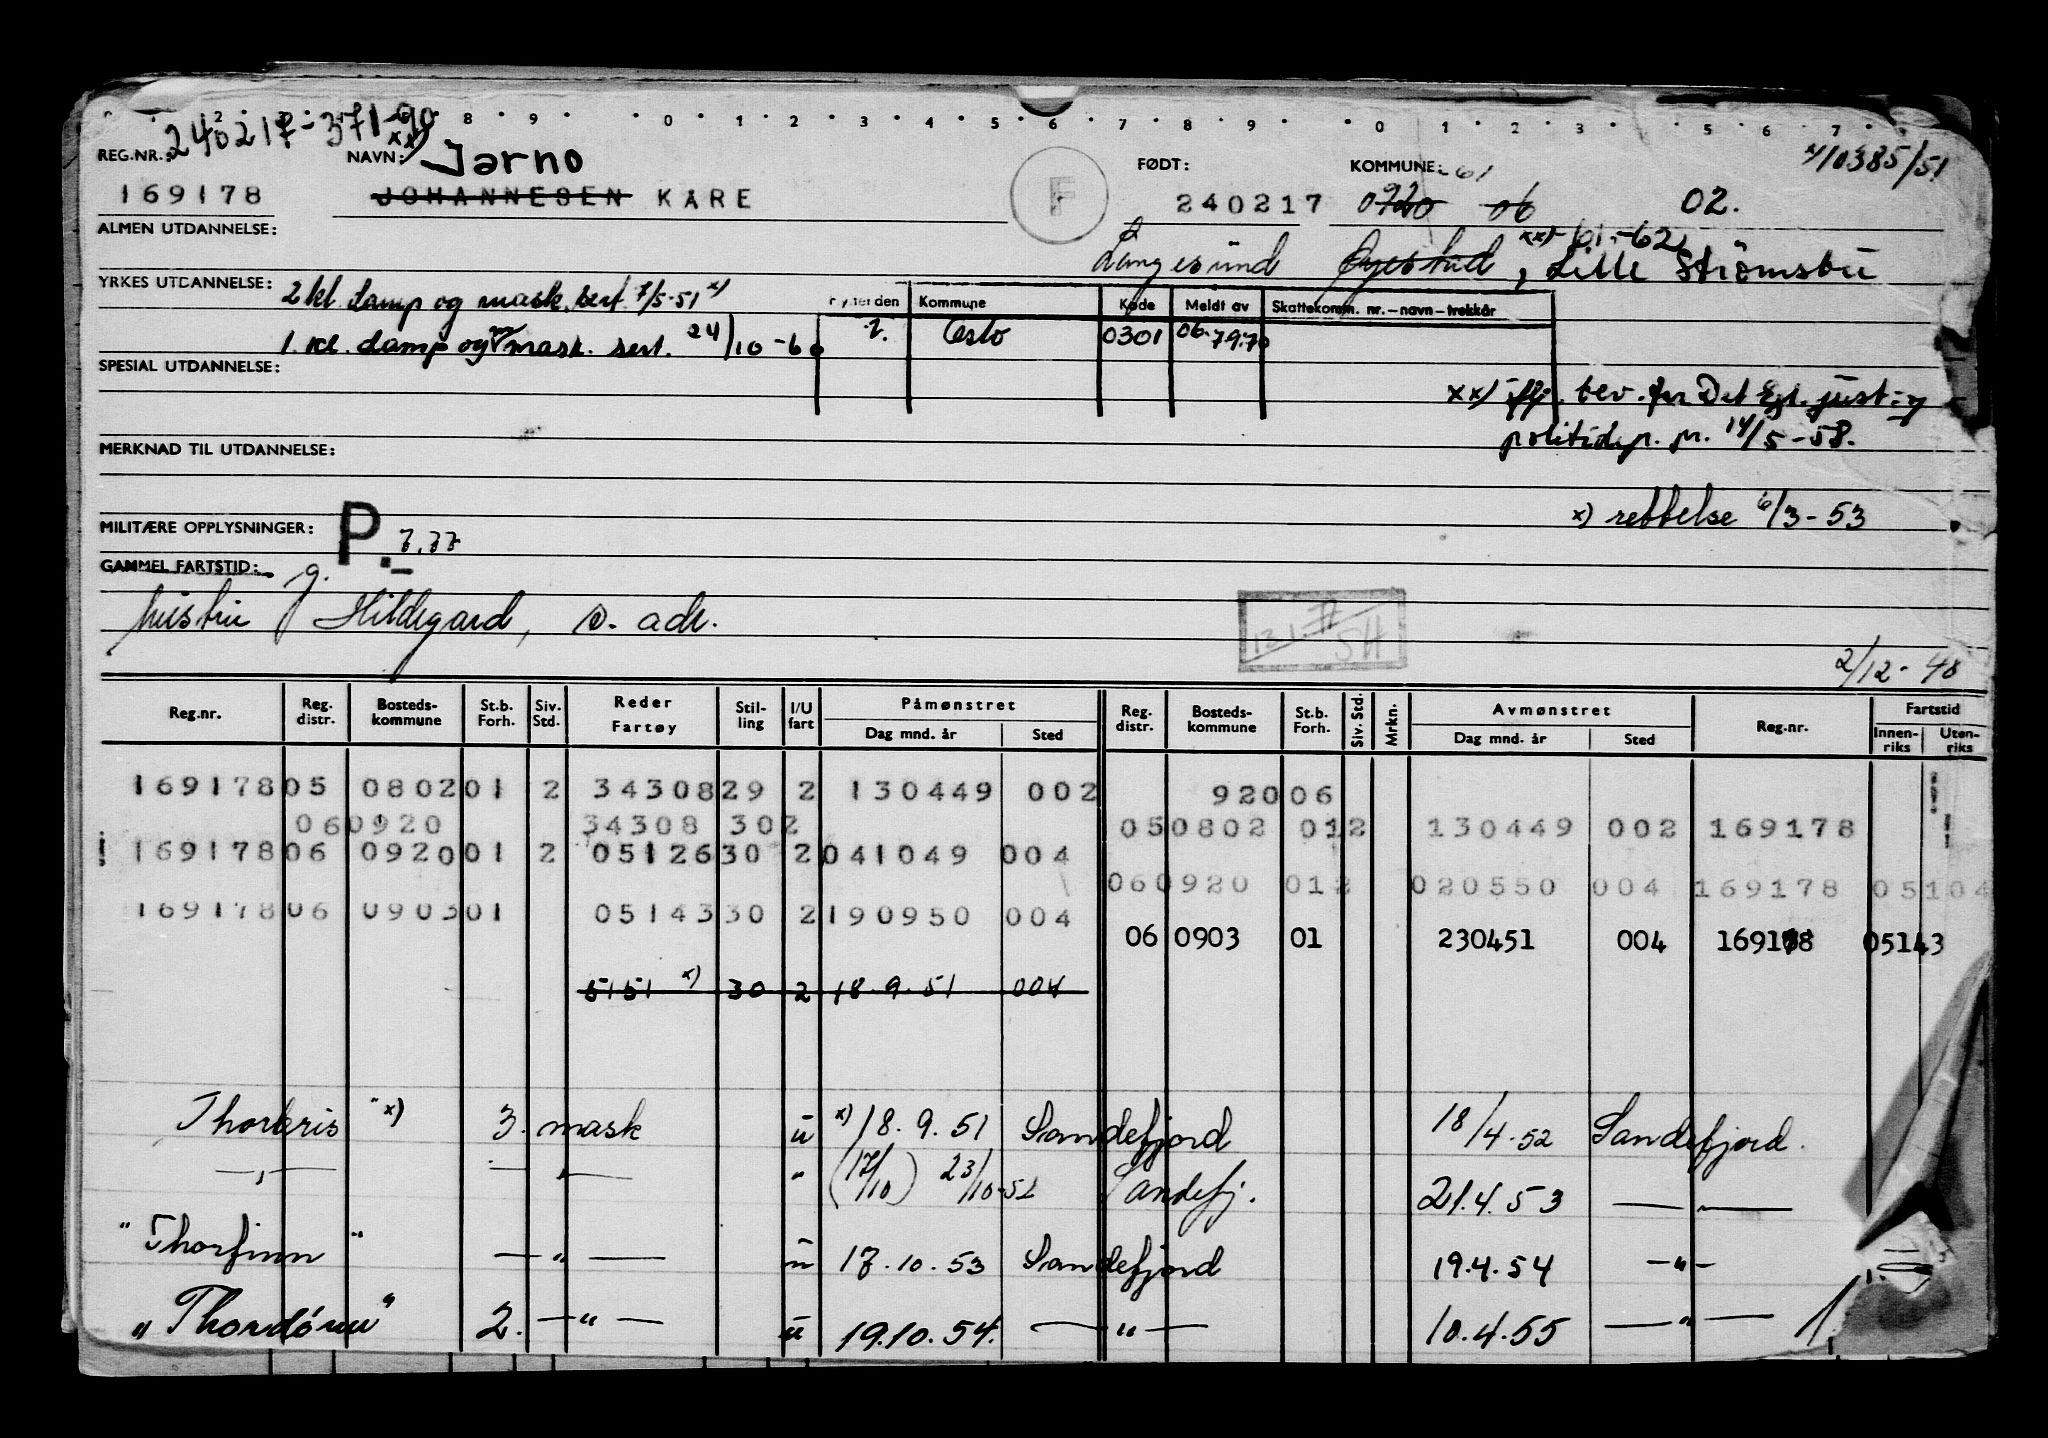 240217-371-90
8 9 0 1 2 3 4 5 6 7 8 9 0 1 2 3 5 6 7
REG.NR.: NAVN: xx) Jarno FØDT: KOMMUNE: -61 x/10385/51
169178 JOHANNESEN KARE F 240217 0920 06 02.
ALMEN UTDANNELSE: xx)-61.-62
Langesund Øyestad, Lille Strømsbu
YRKES UTDANNELSE: 2 kl damp og mask. sert. 7/5-51 x)
Kommune Kode Meldt av Skattekomm. nr.–navn–trekkår
1. kl. damp og mask. sert. 24/10-60 2. Oslo 0301 06.79.70
SPESIAL UTDANNELSE:
xx) iflg. bev. fra Det Kgl. just. og
politidep. pr. 14/5-58.
MERKNAD TIL UTDANNELSE:
x) rettelse 6/3-53
MILITÆRE OPPLYSNINGER: P. 7.77
GAMMEL FARTSTID:
hustru Hildegard, s. adr.
12.1.77 SH
2/12-48
Reg.nr. Reg. distr. Bosteds-kommune St.b. Forh. Siv. Std. Reder Fartøy Stil-ling I/U fart Påmønstret Dag mnd. år Sted Reg. distr. Bosteds-kommune St.b. Forh. Siv. Std. Mrkn. Avmønstret Dag mnd. år Sted Reg.nr. Fartstid Innen-riks Uten-riks
169178 05 0802 01 2 34308 29 2 130449 002 920 06
06 0920 34308 30 2 05 0802 01 2 130449 002 169178
169178 06 0920 01 2 05126 30 2 041049 004
06 0920 01 2 020550 004 169178 05104
169178 06 0903 01 05143 30 2 190950 004
06 0903 01 230451 004 169178 05143
5151 x) 30 2 18.9.51 004
Thorkris" x) 3. mask u x) 18.9.51 Sandefjord 18/4.52 Sandefjord.
—"— —"— " (17/10) 23/10-52 Sandefj. 21.4.53 —"—
"Thorfinn" —"— u 17.10.53 Sandefjord 19.4.54 —"—
"Thordönn" 2. —"— u 19.10.54. —"— 10.4.55 —"— 1.